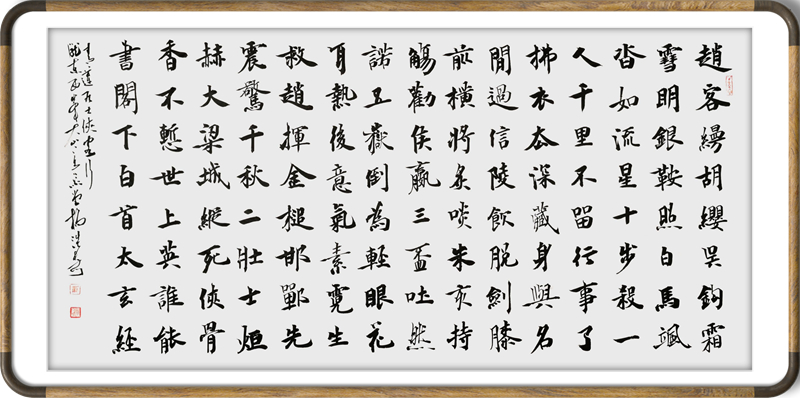 趙客縵胡纓吳鉤霜
雪明銀鞍照白馬颯
沓如流星十步殺一
人千里不留行事了
拂衣去深藏身與名
閒過信陵飲脫劍膝
前橫將炙啖朱亥持
觴勸侯嬴三盃吐然
諾五嶽倒為輕眼花
耳熱後意氣素霓生
救趙揮金槌邯鄲先
震驚千秋二壯士烜
赫大梁城縱死俠骨
香不慙世上英誰能
書閣下白首太玄經